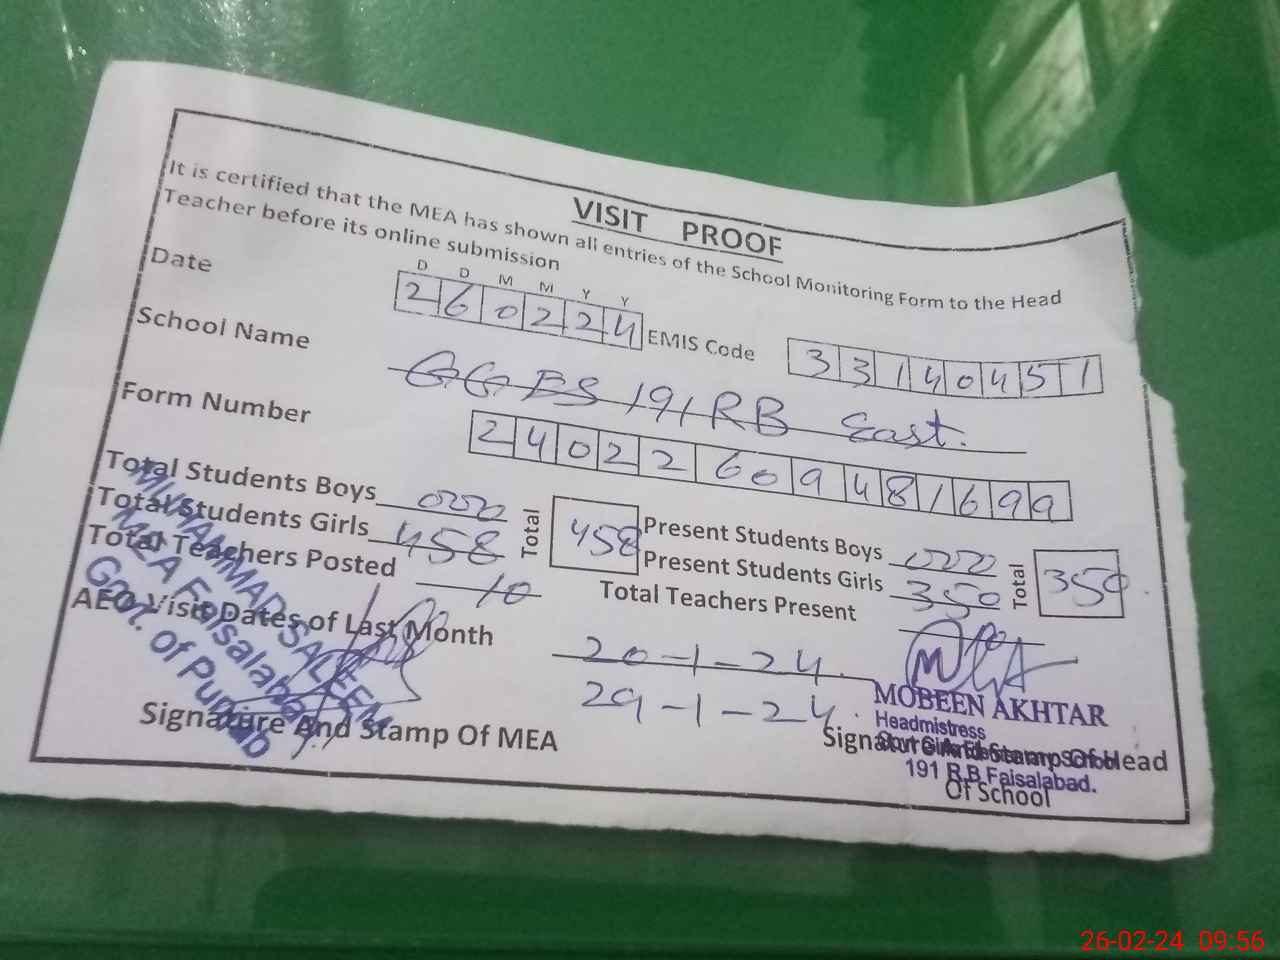 VISIT PROOF
It is certified that the MEA has shown all entries of the School Monitoring Form to the Head
Teacher before its online submission
D D M M Y Y
Date 260224 EMIS Code 33140451
School Name GGES 191 RB East.
Form Number 240226094481699
Total Students Boys 000
Total Students Girls 458
Total 458
Present Students Boys 000
Present Students Girls 350
Total 350
Total Teachers Posted 10
Total Teachers Present 10
AEO Visit Dates of Last Month 20-1-24.
29-1-24.
MUHAMMAD SALEEM
MEA Faisalabad
Govt. of Punjab
Signature And Stamp Of MEA
MOBEEN AKHTAR
Headmistress
Govt Girls Elementary School
191 R.B Faisalabad.
Signature And Stamp Of Head
Of School
26-02-24 09:56